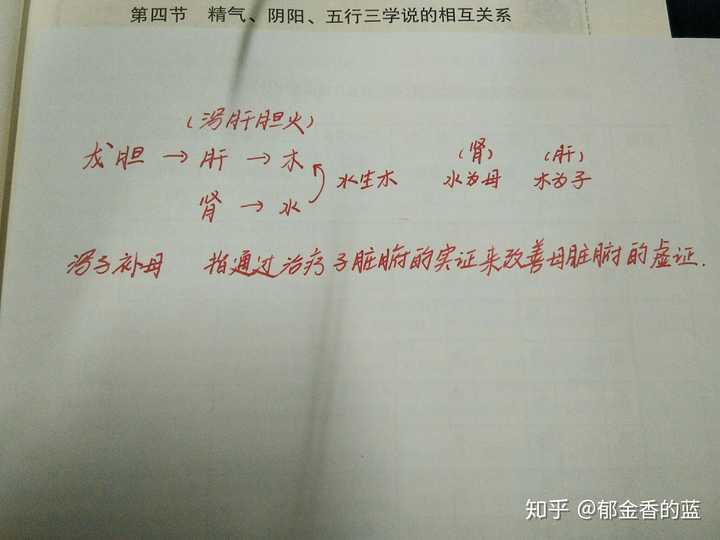 第四节 精气、阴阳、五行三学说的相互关系
(泻肝胆火)
龙胆 → 肝 → 木
肾 → 水
水生木
(肾) (肝)
水为母 木为子
泻子补母 指通过治疗子脏腑的实证来改善母脏腑的虚证.
知乎 @郁金香的蓝